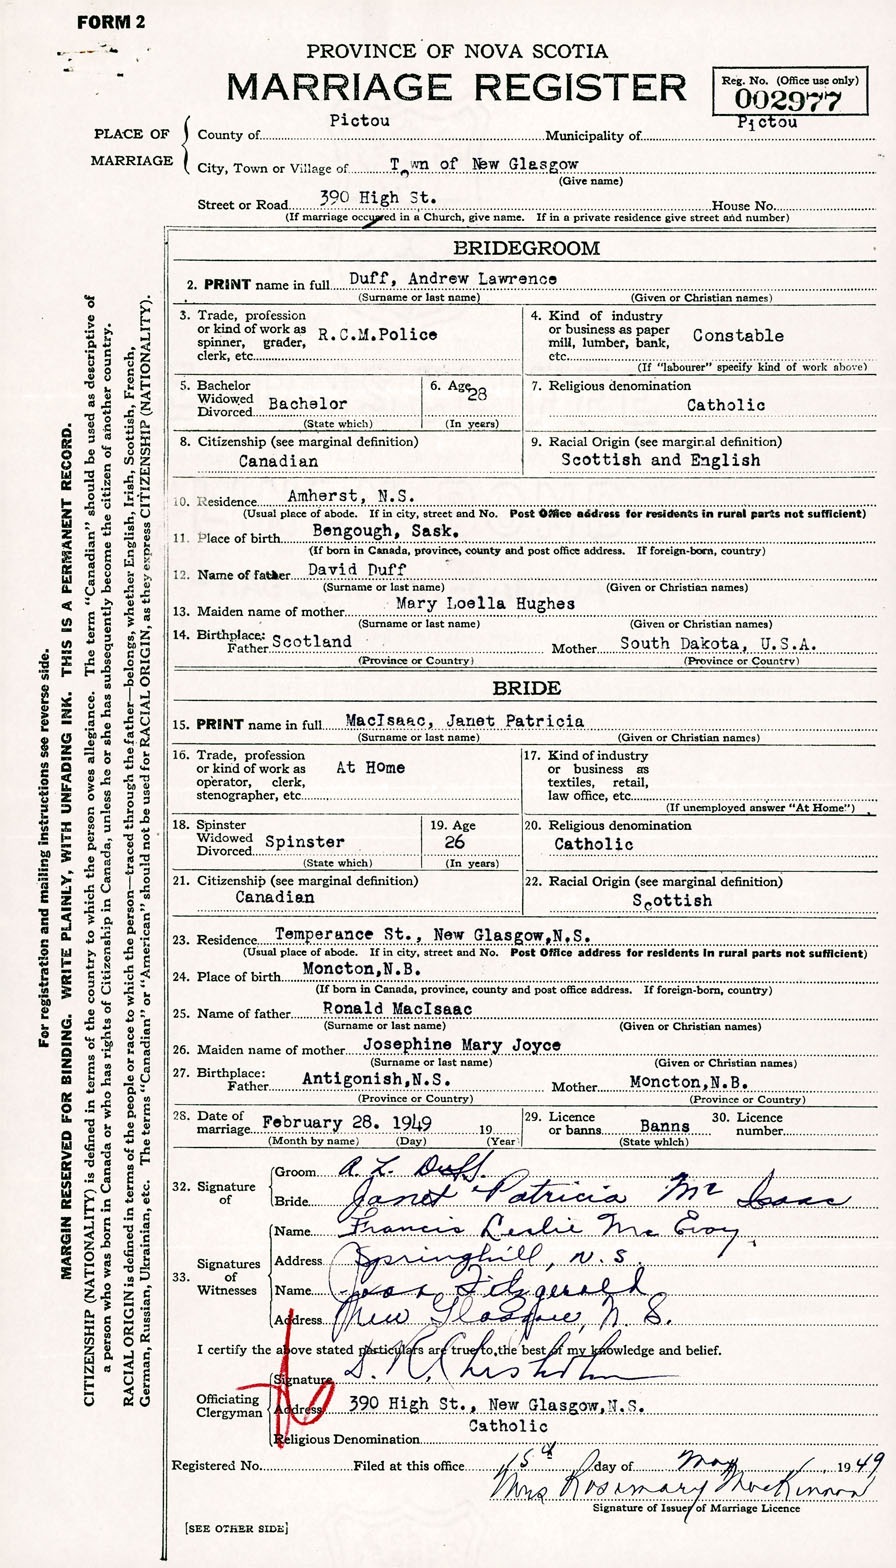 FORM 2
PROVINCE OF NOVA SCOTIA
MARRIAGE REGISTER
Reg. No. (Office use only)
002977
PLACE OF MARRIAGE
County of Pictou Municipality of Pictou
City, Town or Village of Town of New Glasgow
(Give name)
Street or Road 390 High St. House No.
(If marriage occured in a Church, give name. If in a private residence give street and number)
BRIDEGROOM
2. PRINT name in full Duff, Andrew Lawrence
(Surname or last name) (Given or Christian names)
3. Trade, profession
or kind of work as
spinner, grader,
clerk, etc. R.C.M.Police
4. Kind of industry
or business as paper
mill, lumber, bank,
etc. Constable
(If "labourer" specify kind of work above)
5. Bachelor
Widowed
Divorced Bachelor
(State which)
6. Age 28
(In years)
7. Religious denomination
Catholic
8. Citizenship (see marginal definition)
Canadian
9. Racial Origin (see marginal definition)
Scottish and English
10. Residence Amherst, N.S.
(Usual place of abode. If in city, street and No. Post Office address for residents in rural parts not sufficient)
11. Place of birth Bengough, Sask.
(If born in Canada, province, county and post office address. If foreign-born, country)
12. Name of father David Duff
(Surname or last name) (Given or Christian names)
13. Maiden name of mother Mary Loella Hughes
(Surname or last name) (Given or Christian names)
14. Birthplace:
Father Scotland Mother South Dakota, U.S.A.
(Province or Country) (Province or Country)
BRIDE
15. PRINT name in full MacIsaac, Janet Patricia
(Surname or last name) (Given or Christian names)
16. Trade, profession
or kind of work as
operator, clerk,
stenographer, etc. At Home
17. Kind of industry
or business as
textiles, retail,
law office, etc.
(If unemployed answer "At Home")
18. Spinster
Widowed
Divorced Spinster
(State which)
19. Age
26
(In years)
20. Religious denomination
Catholic
21. Citizenship (see marginal definition)
Canadian
22. Racial Origin (see marginal definition)
Scottish
23. Residence Temperance St., New Glasgow,N.S.
(Usual place of abode. If in city, street and No. Post Office address for residents in rural parts not sufficient)
24. Place of birth Moncton,N.B.
(If born in Canada, province, county and post office address. If foreign-born, country)
25. Name of father Ronald MacIsaac
(Surname or last name) (Given or Christian names)
26. Maiden name of mother Josephine Mary Joyce
(Surname or last name) (Given or Christian names)
27. Birthplace:
Father Antigonish,N.S. Mother Moncton,N.B.
(Province or Country) (Province or Country)
28. Date of
marriage February 28. 1949 19
(Month by name) (Day) (Year
29. Licence
or banns Banns
(State which)
30. Licence
number
32. Signature of
Groom A. L. Duff.
Bride Janet Patricia Mc Isaac
33. Signatures of Witnesses
Name Francis Leslie Mc Evoy.
Address Springhill, N.S.
Name Fitzgerald
Address New Glasgow, N.S.
I certify the above stated particulars are true to the best of my knowledge and belief.
Officiating Clergyman
Signature D. R. Chisholm
Address 390 High St., New Glasgow,N.S.
Religious Denomination Catholic
Registered No. Filed at this office 15th day of May, 1949
Mrs Rosemary MacKinnon
Signature of Issuer of Marriage Licence
[SEE OTHER SIDE]
For registration and mailing instructions see reverse side.
MARGIN RESERVED FOR BINDING. WRITE PLAINLY, WITH UNFADING INK. THIS IS A PERMANENT RECORD.
CITIZENSHIP (NATIONALITY) is defined in terms of the country to which the person owes allegiance. The term "Canadian" should be used as descriptive of
a person who was born in Canada or who has rights of Citizenship in Canada, unless he or she has subsequently become the citizen of another country.
RACIAL ORIGIN is defined in terms of the people or race to which the person—traced through the father—belongs, whether English, Irish, Scottish, French,
German, Russian, Ukrainian, etc. The terms "Canadian" or "American" should not be used for RACIAL ORIGIN, as they express CITIZENSHIP (NATIONALITY).